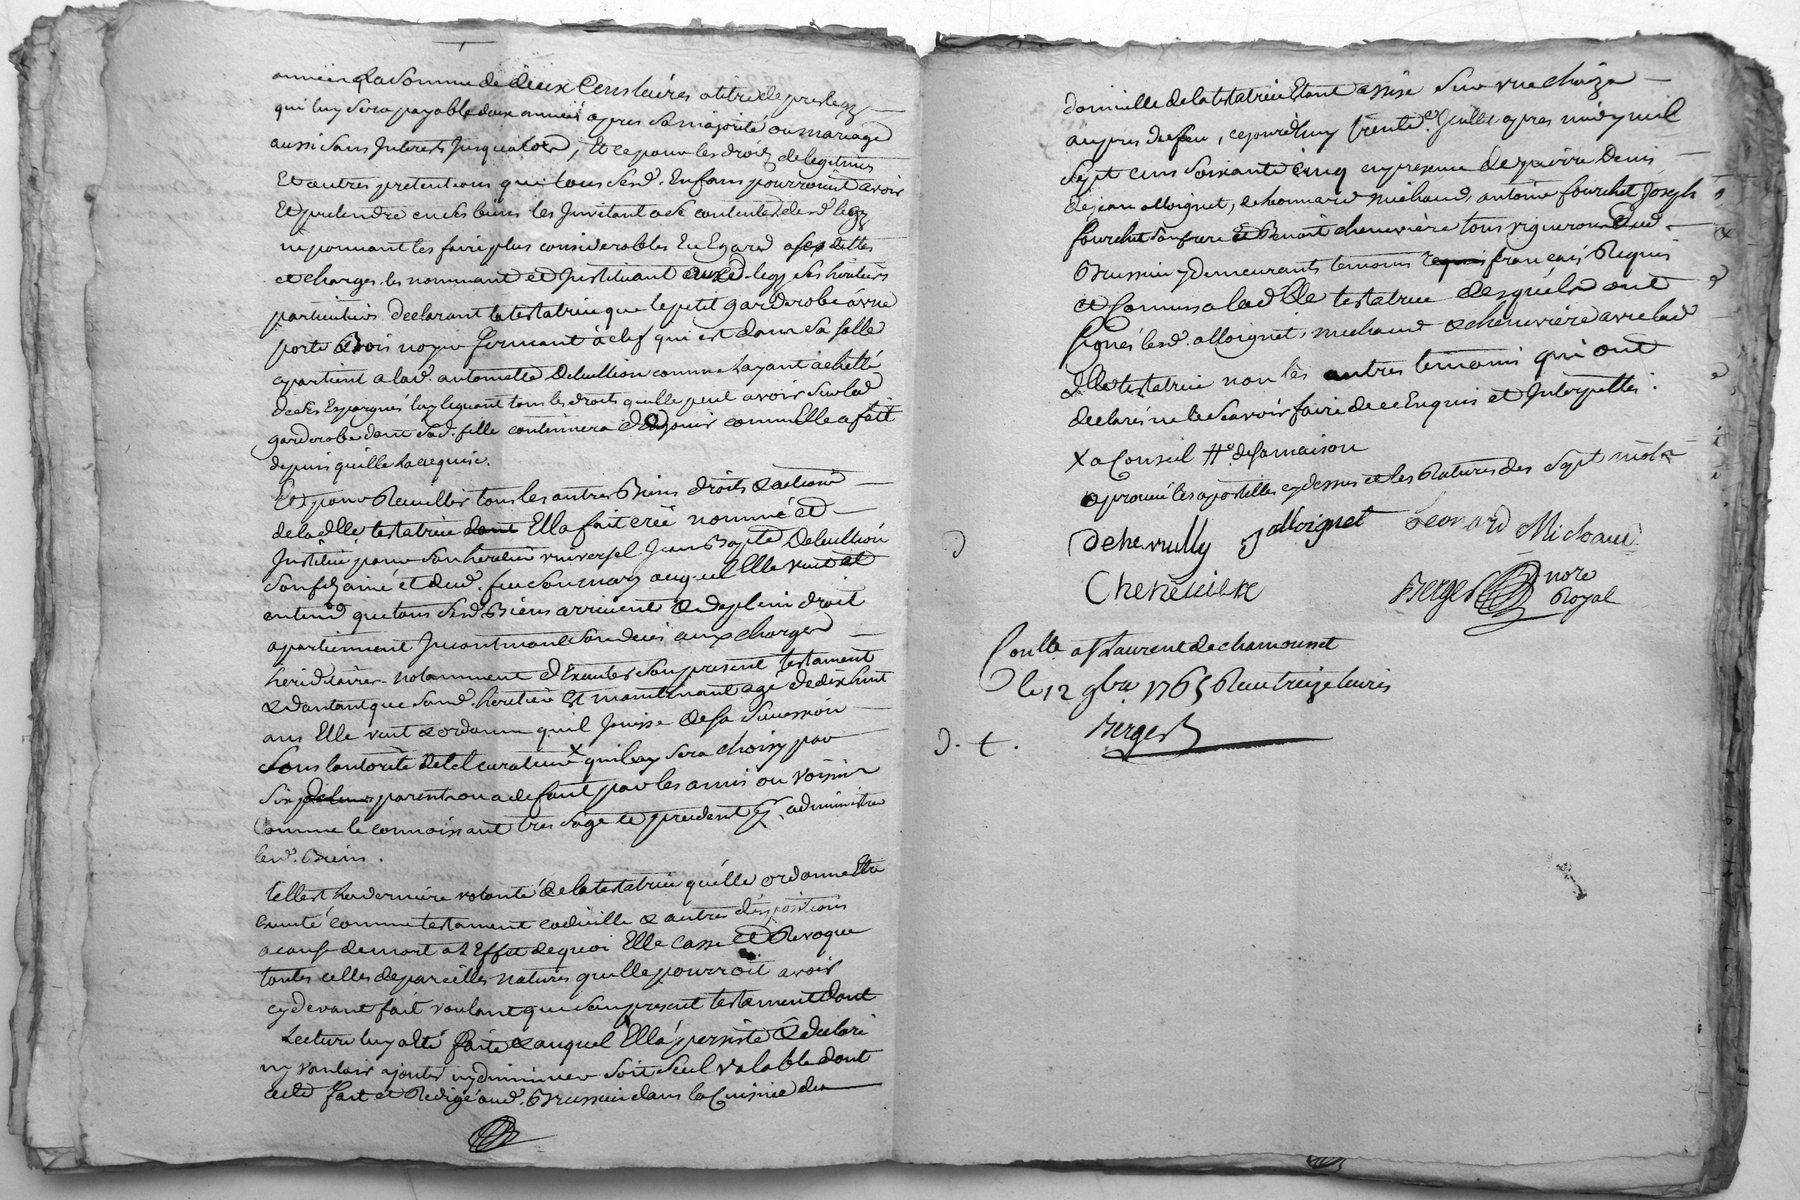 années La Somme de deux Cens livres a titre de prelegz
qui luy sera payable deux années apres sa majorité ou mariage
aussi sans Interets Jusqualord, Et ce pour les droits de legitimes
Et autres pretentions que tous sesd. Enfans pourroient avoir
Et pretendre en ses biens les Invitant a se contenter desd. legz
ne pouvant les faire plus considerables Eu Egard a ses dettes
et charges les nommant et Instituant auxd. legz ses heritiers
particuliers. Declarant la testatrice que le petit garderobe a une
porte Bois noyer fermant à clef qui est dans sa salle
apartient a lad. antoinette Delullion comme layant acheté
de ses Epargnes luy leguant tous les droits quelle peut avoir sur led
garderobe dont sad. fille continuera de jouir comme elle a fait
depuis quelle la acquise.
Et pour Recueillir tous les autres Biens droits & actions
de lad. dlle testatrice dont Ella fait créé nommé et
Institué pour son heritier universel Jean Bapte Delullion
son fils ainé et dud. feu son mary auquel Elle veut et
entend que tous sesd. Biens arrivent & de plein droit
apartiennent Incontinant son deces aux charges
hereditaires notamment d'Executer son present testament
& dautant que sond. heritier Est maintenant agé de dix huit
ans Elle veut & ordonne quil Jouisse de sa succession
sous lautorité del curateur x qui luy sera choisy par
six de leurs parents ou a defaut par les amis ou voisins
Comme le connoissant tres sage et prudent pr. administrer
lesd. Biens.
telle est la derniere volonté de la testatrice quelle ordonne Etre
Executé comme testament codicille & autres dispositions
a cause de mort a l'Effet de quoi Elle Casse Et Revoque
toutes celles de pareilles natures quelle pourroit avoir
cy devant fait voulant que son present testament dont
Lecture luy a été faite & auquel Ella persisté & declaré
ny vouloir ajouter ny diminuer soit seul valable dont
acte fait et Redigé aud. Brussieu dans la Cuisine du
domicille de la testatrice Etant assise sur une chaize
aupres du feu, cejourdhuy trente Jeuillet apres midy mil
sept cens soixante cinq en presence de pierre Denis
de jean alloignet, de leonnard michaud, antoine fourchet Joseph
fourchet son frere Et Benoit chenevière tous vignerons dud.
Brussieu y demeurants temoins requis francais Requis
et Connus a lad. dlle testatrice desquels ont
signés lesd. alloignet, michaud & chenevière avec lad
dlle testatrice non les autres temoins qui ont
declarés ne le sçavoir faire de ce Enquis et Interpellés.
x a Conseil de sa maison
aprouvé les apostilles cy dessus et les Ratures des sept mots
Dechevrully J alloignet Leonard Michaud
Chenevière Berger nore
Royal
Conllé a St Laurent de chamousset
le 12 9bre 1765 Reçu treize livres
Berger